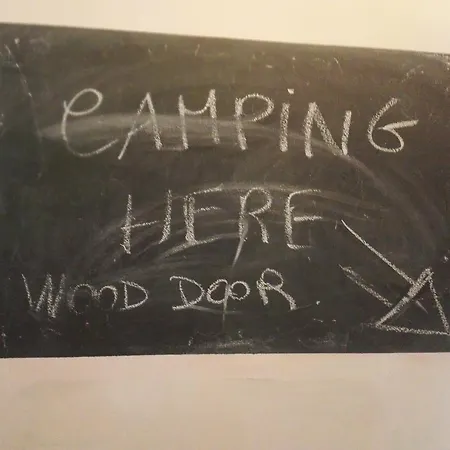 CAMPiNG
HERE
WOOD DOOR